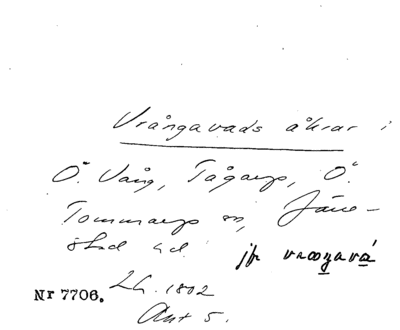 Vrångavads åkrar i
Ö. Vång, Tågarp, Ö.
Tommarps sn, Järre-
stad hd.
jfr vrææŋavá
Nr 7706. LG. 1802
Akt 5.